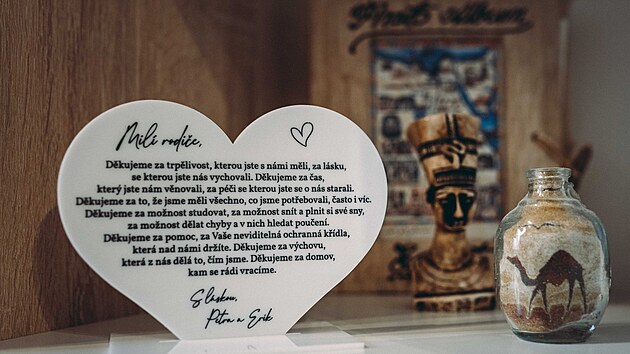 Photo Album
Milí rodiče,
Děkujeme za trpělivost, kterou jste s námi měli, za lásku,
se kterou jste nás vychovali. Děkujeme za čas,
který jste nám věnovali, za péči se kterou jste se o nás starali.
Děkujeme za to, že jsme měli všechno, co jsme potřebovali, často i víc.
Děkujeme za možnost studovat, za možnost snít a plnit si své sny,
za možnost dělat chyby a v nich hledat poučení.
Děkujeme za pomoc, za Vaše neviditelná ochranná křídla,
která nad námi držíte. Děkujeme za výchovu,
která z nás dělá to, čím jsme. Děkujeme za domov,
kam se rádi vracíme.
S láskou,
Petra a Erik